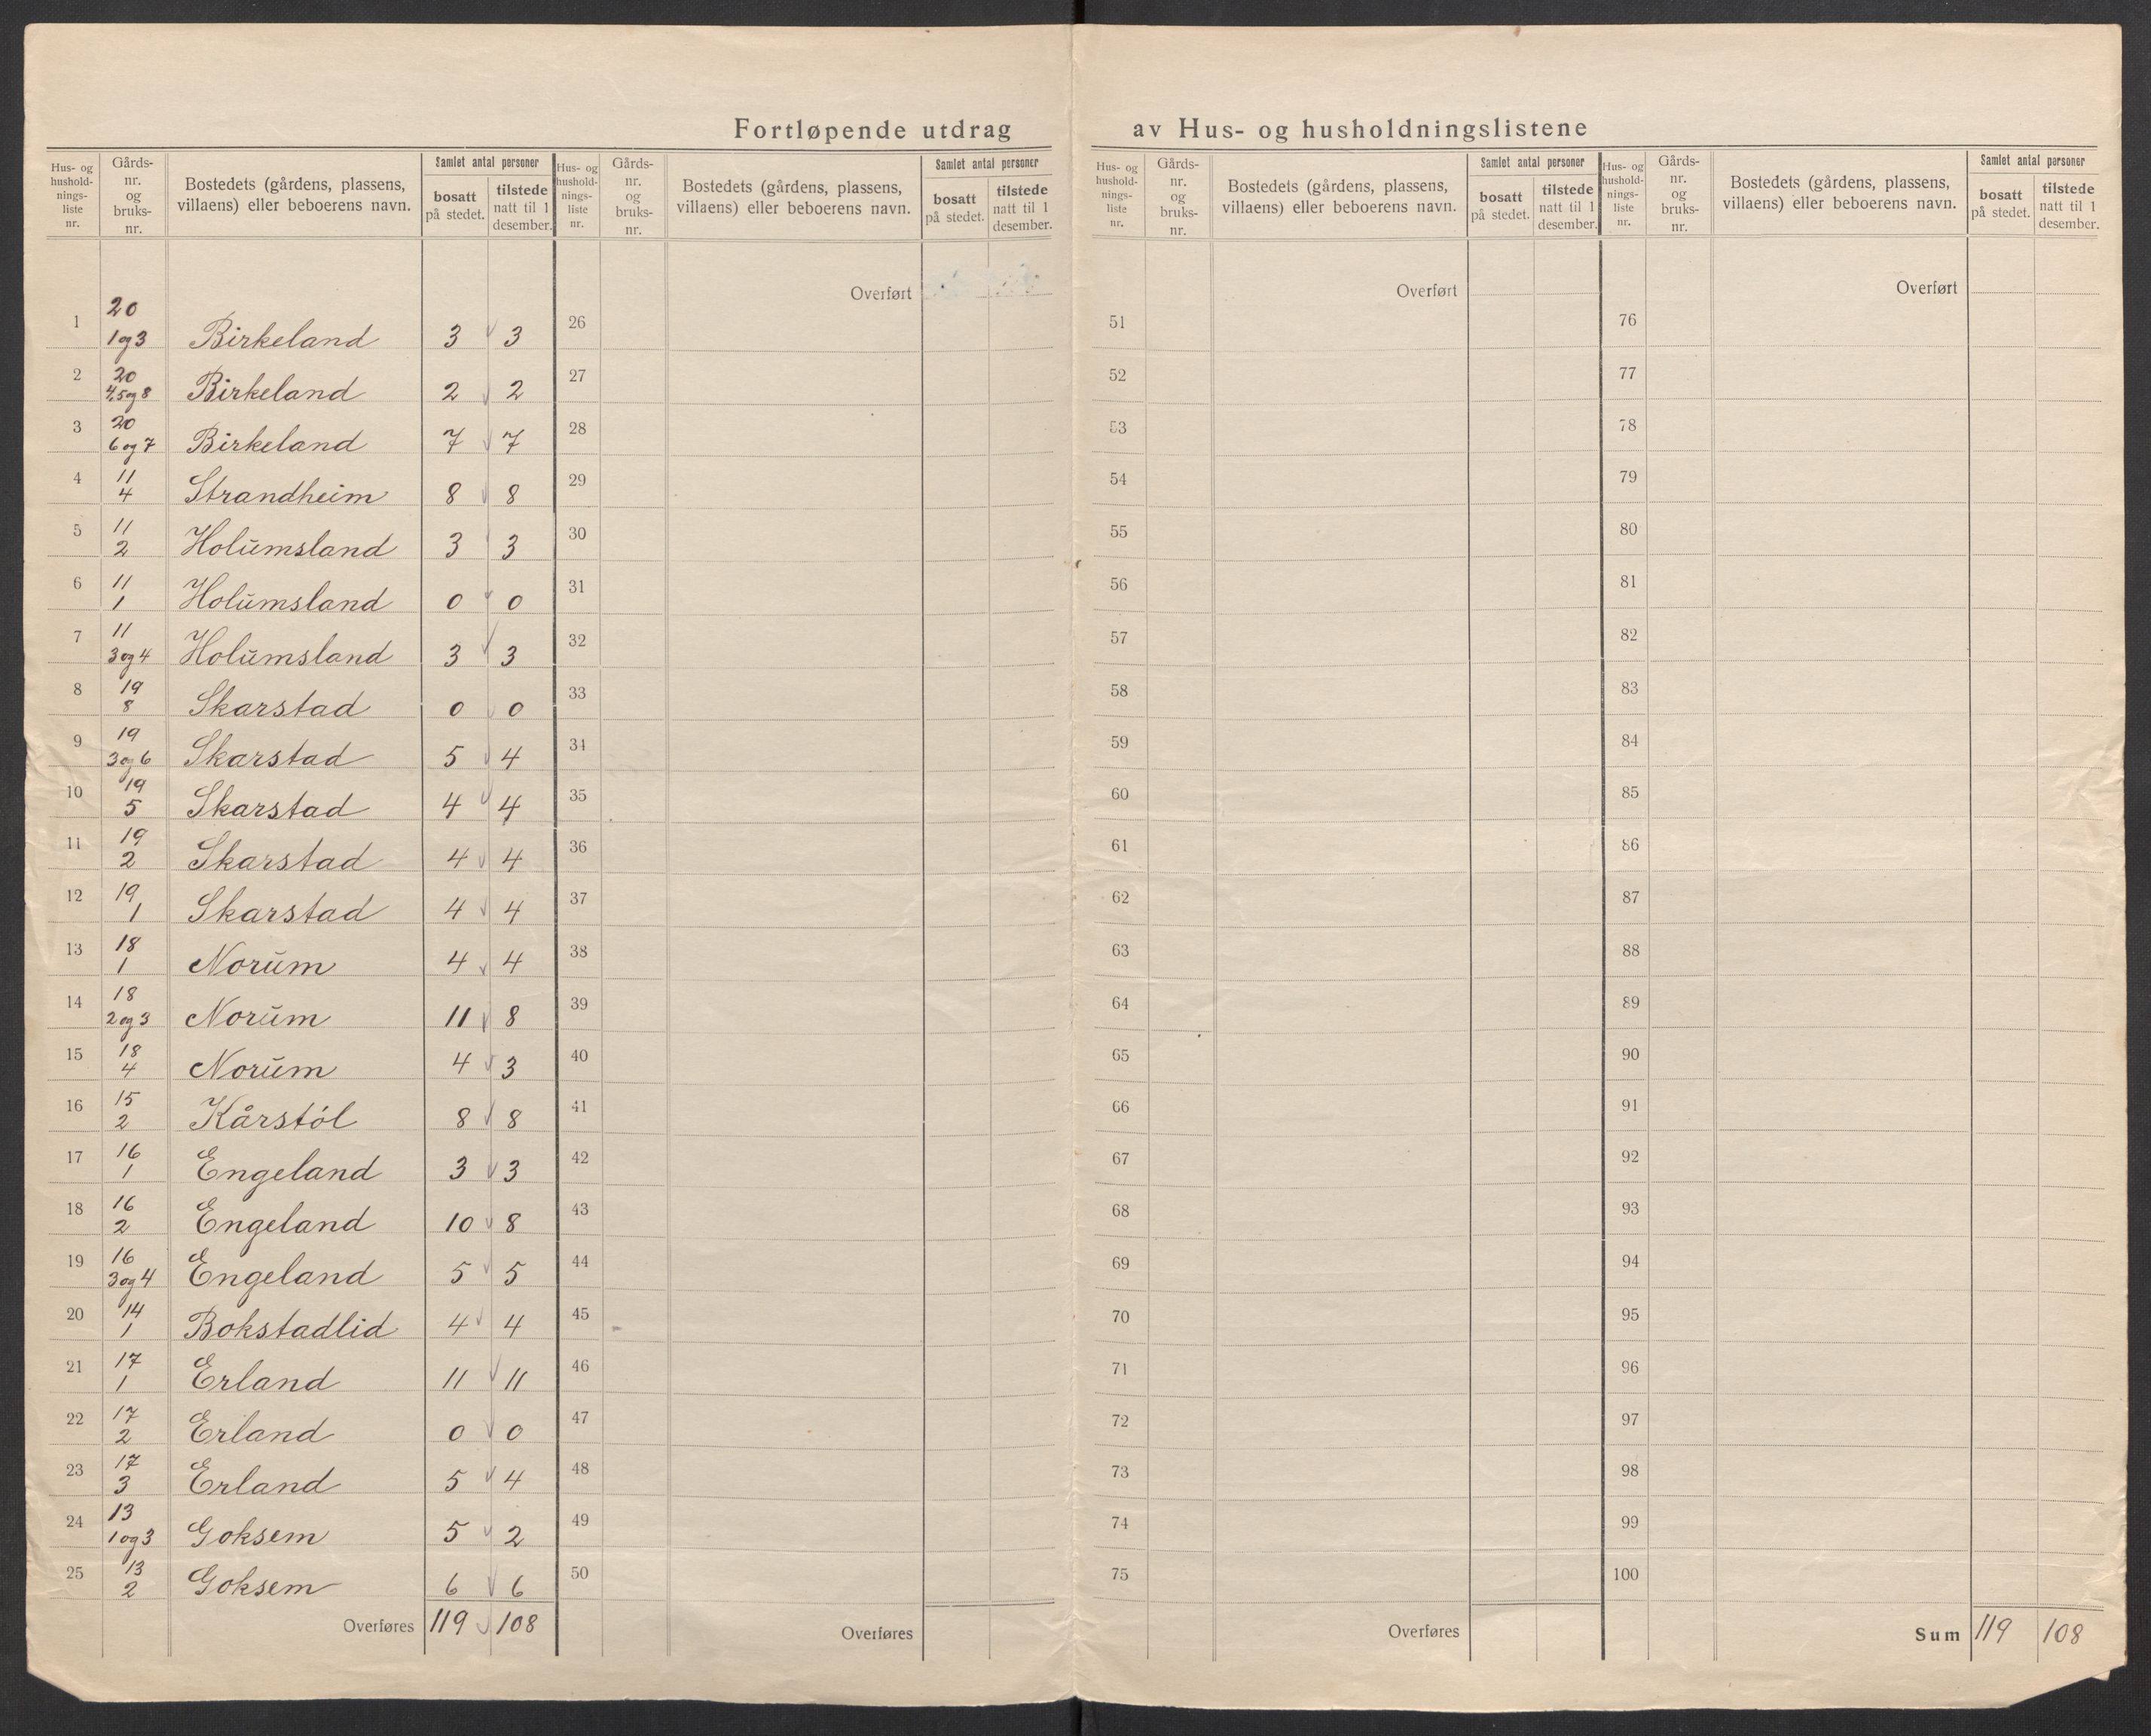 Fortløpende utdrag av Hus- og husholdningslistene
Hus- og hushold- nings- liste nr. | Gårds- nr. og bruks- nr. | Bostedets (gårdens, plassens, villaens) eller beboerens navn. | Samlet antal personer | bosatt på stedet. | tilstede natt til 1 desember.
1 | 20 1 og 3 | Birkeland | 3 | 3
2 | 20 4,5 og 8 | Birkeland | 2 | 2
3 | 20 6 og 7 | Birkeland | 7 | 7
4 | 11 4 | Strandheim | 8 | 8
5 | 11 2 | Holŭmsland | 3 | 3
6 | 11 1 | Holŭmsland | 0 | 0
7 | 11 3 og 4 | Holŭmsland | 3 | 3
8 | 19 8 | Skarstad | 0 | 0
9 | 19 3 og 6 | Skarstad | 5 | 4
10 | 19 5 | Skarstad | 4 | 4
11 | 19 2 | Skarstad | 4 | 4
12 | 19 1 | Skarstad | 4 | 4
13 | 18 1 | Norŭm | 4 | 4
14 | 18 2 og 3 | Norŭm | 11 | 8
15 | 18 4 | Norŭm | 4 | 3
16 | 15 2 | Kårstól | 8 | 8
17 | 16 1 | Engeland | 3 | 3
18 | 16 2 | Engeland | 10 | 8
19 | 16 3 og 4 | Engeland | 5 | 5
20 | 14 1 | Bokstadlid | 4 | 4
21 | 17 1 | Erland | 11 | 11
22 | 17 2 | Erland | 0 | 0
23 | 17 3 | Erland | 5 | 4
24 | 13 1 og 3 | Goksem | 5 | 2
25 | 13 2 | Goksem | 6 | 6
Overføres | 119 | 108
Hus- og hushold- nings- liste nr. | Gårds- nr. og bruks- nr. | Bostedets (gårdens, plassens, villaens) eller beboerens navn. | Samlet antal personer | bosatt på stedet. | tilstede natt til 1 desember.
Overført
26
27
28
29
30
31
32
33
34
35
36
37
38
39
40
41
42
43
44
45
46
47
48
49
50
Overføres
Hus- og hushold- nings- liste nr. | Gårds- nr. og bruks- nr. | Bostedets (gårdens, plassens, villaens) eller beboerens navn. | Samlet antal personer | bosatt på stedet. | tilstede natt til 1 desember.
Overført
51
52
53
54
55
56
57
58
59
60
61
62
63
64
65
66
67
68
69
70
71
72
73
74
75
Overføres
Hus- og hushold- nings- liste nr. | Gårds- nr. og bruks- nr. | Bostedets (gårdens, plassens, villaens) eller beboerens navn. | Samlet antal personer | bosatt på stedet. | tilstede natt til 1 desember.
Overført
76
77
78
79
80
81
82
83
84
85
86
87
88
89
90
91
92
93
94
95
96
97
98
99
100
Sum | 119 | 108